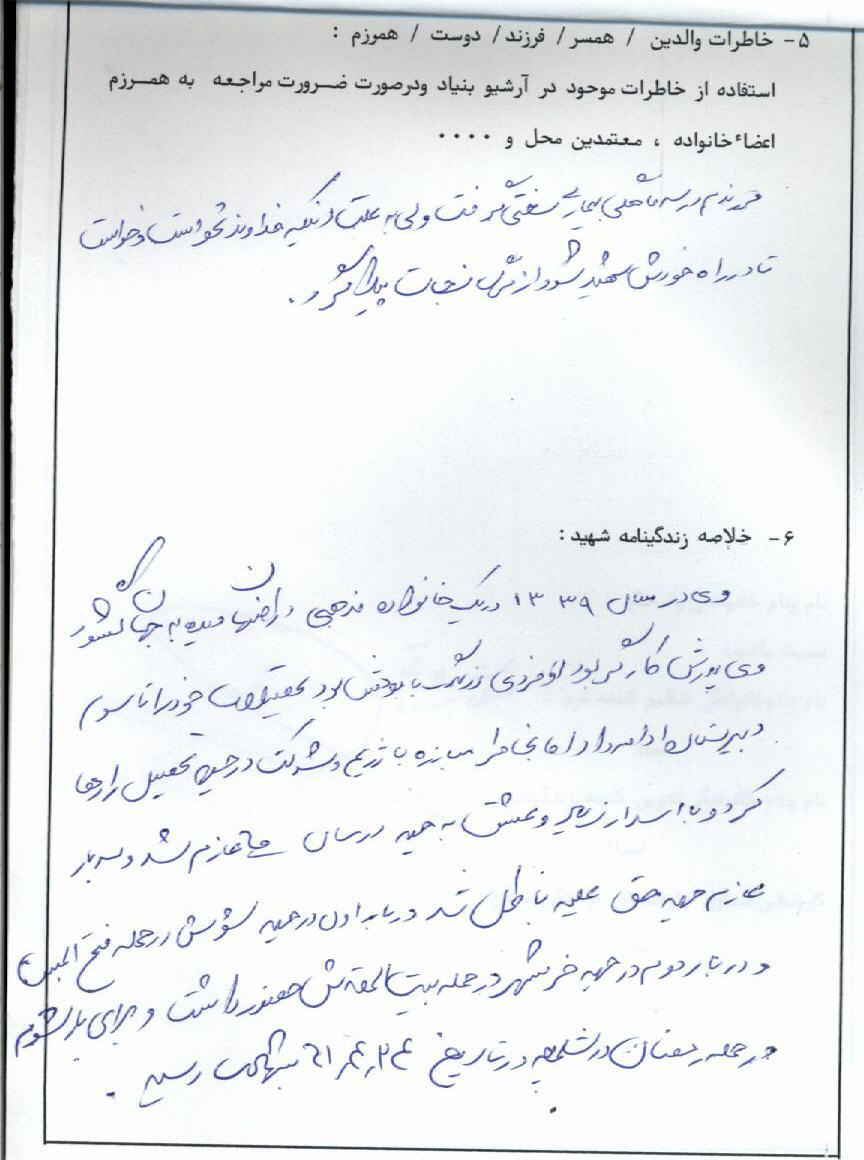 ۵- خاطرات والدین / همسر / فرزند / دوست / همرزم :
استفاده از خاطرات موجود در آرشیو بنیاد ودرصورت ضرورت مراجعه به همرزم
اعضاء خانواده ، معتمدین محل و ۰۰۰۰
فرزندم در سه ماهگی بیماری سختی گرفت ولی به علت اینکه خداوند نخواست و خواست
تا در راه خودش شهید شود از مرگ نجات پیدا کرد .
۶- خلاصه زندگینامه شهید :
وی در سال ۱۳۳۹ در یک خانواده مذهبی در اصفهان دیده به جهان گشود
وی پدرش کارگر بود او فردی زرنگ با هوش بود تحصیلات خود را تا سوم
دبیرستان ادامه داد اما بخاطر مبارزه با رژیم و شرکت در جبهه تحصیل را رها
کرد و با اصرار زیاد و عشق به جبهه در سال عازم شد و سه بار
عازم جبهه حق علیه باطل شد در بار اول در جبهه شوش در حمله فتح المبین
و در بار دوم در جبهه خرمشهر در حمله بیت المقدس حضور داشت و برای بار سوم
در حمله رمضان در شلمچه در تاریخ بشهادت رسید .